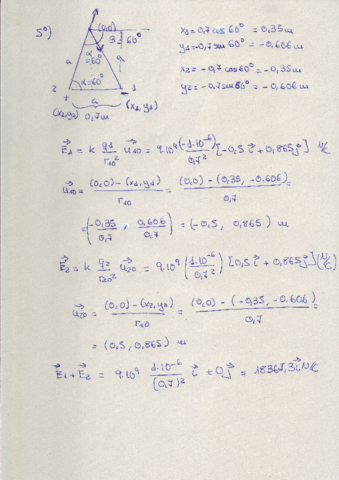 5º) (0,0)
3 60º
α=60º
a a
2 α=60º 1
+ a -
(x2,y2) 0,7m (x1,y1)
x1=0,7 cos 60º = 0,35m
y1=-0,7 sen 60º = -0,606m
x2= -0,7 cos 60º = -0,35m
y2= -0,7 sen 60º = -0,606m
E1 = k q1/r10² u10 = 9·10⁹ (-1·10⁻⁶)/0,7² [-0,5 i + 0,865 j] N/C
u10 = ((0,0) - (x1,y1))/r10 = ((0,0) - (0,35, -0.606))/0,7 =
= (-0,35/0,7 , 0,606/0,7) = (-0,5, 0,865) m
E2 = k q2/r20² u20 = 9·10⁹ (1·10⁻⁶/0,7²) [0,5 i + 0,865 j] (N/C)
u20 = ((0,0) - (x2,y2))/r10 = ((0,0) - (-0,35, -0.606))/0,7 =
= (0,5, 0,865) m
E1 + E2 = 9·10⁹ 1·10⁻⁶/(0,7)² i + 0 j = 18367,3 i N/C